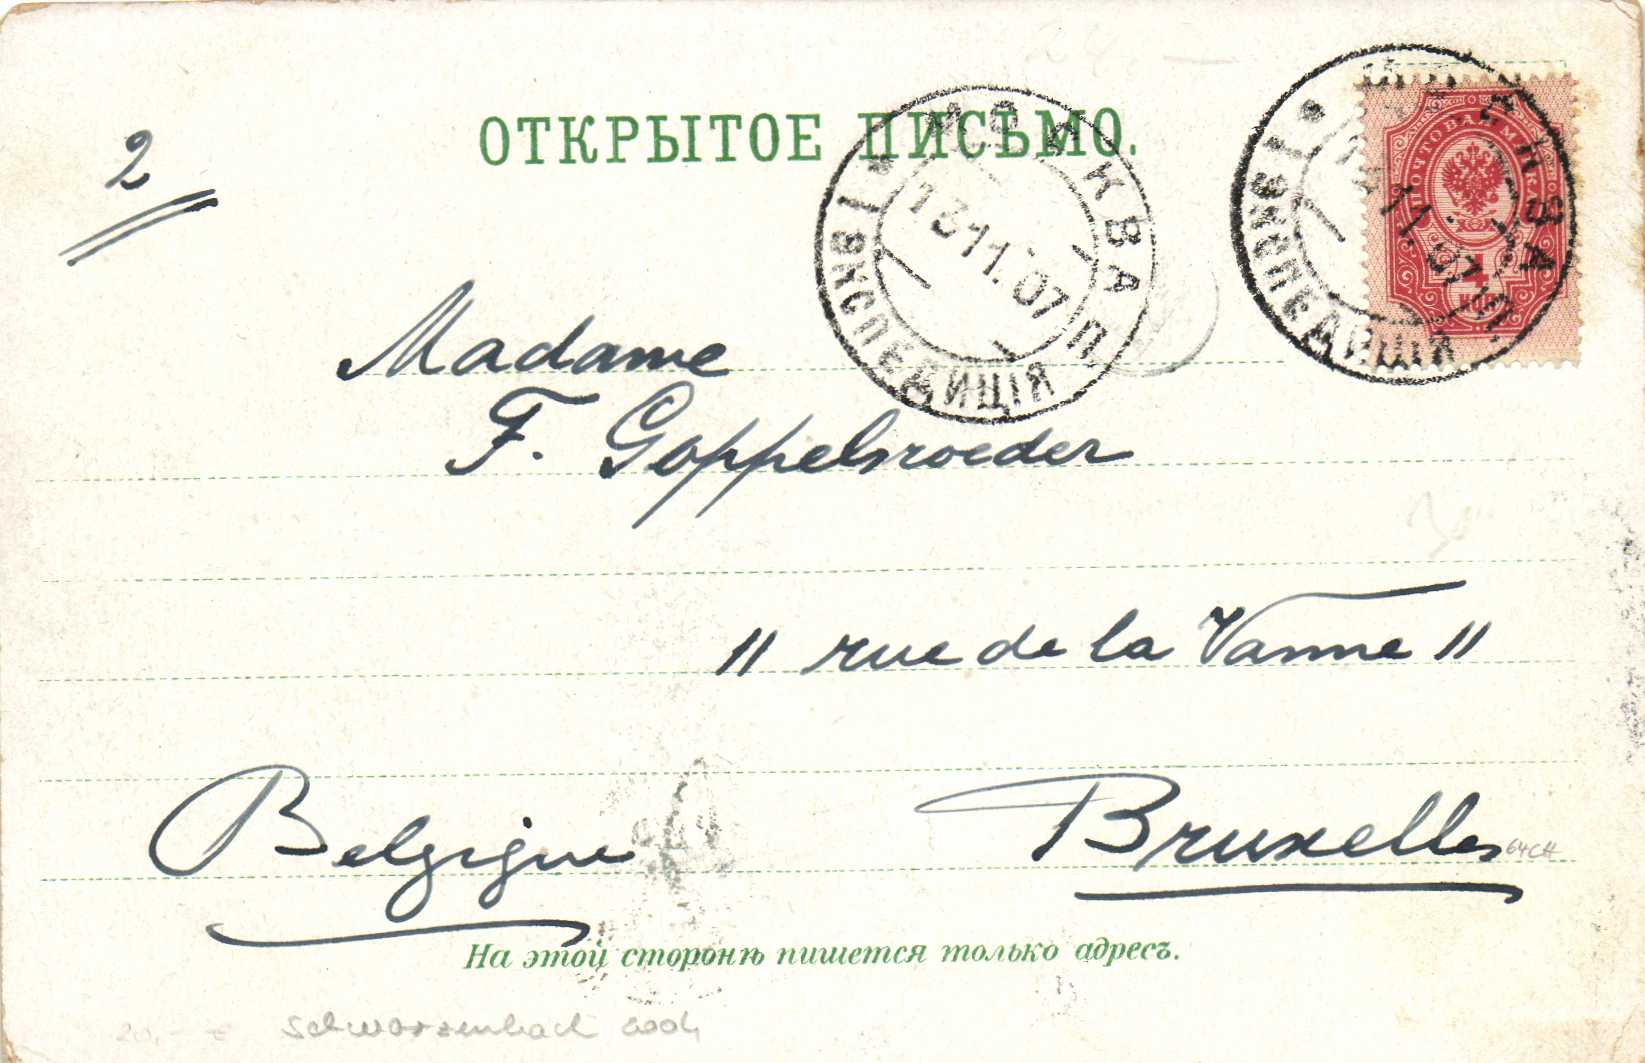 ОТКРЫТОЕ ПИСЬМО.
2
МОСКВА П.
I ЭКСПЕДИЦІЯ
13.11.07
ПОЧТОВАЯ МАРКА
4
ЭКСПЕДИЦІЯ
Madame
F. Goppelsroeder
11 rue de la Vanne 11
Belgique
Bruxelles
64CH
На этой сторонѣ пишется только адресъ.
20,-